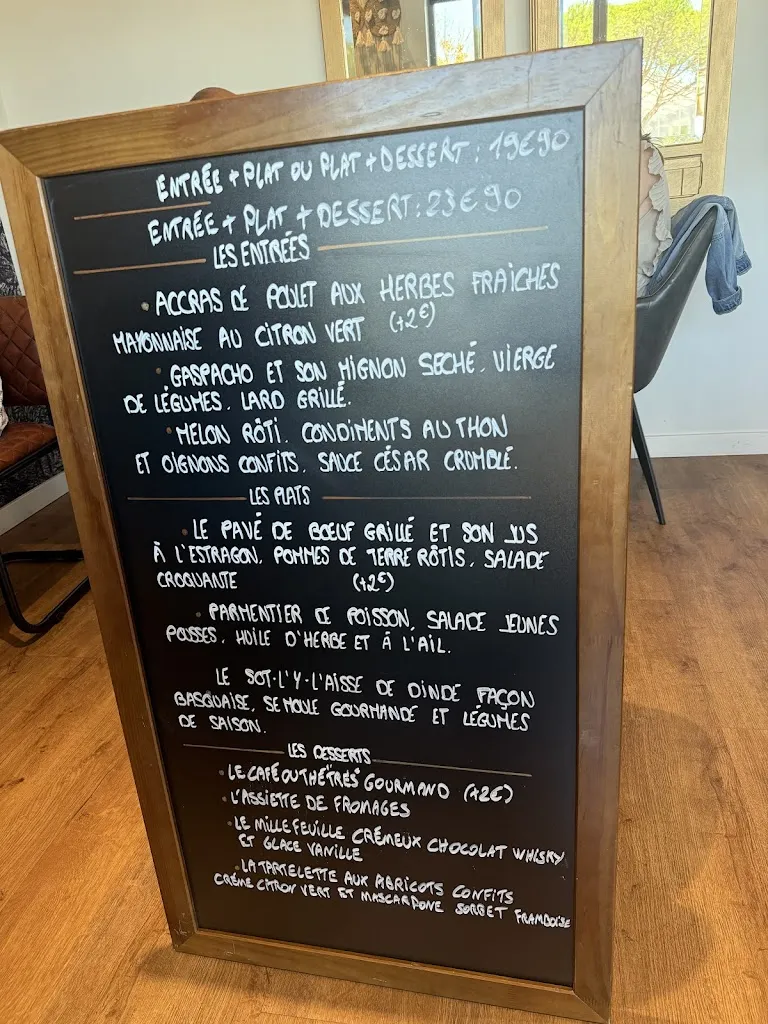 ENTRÉE + PLAT OU PLAT + DESSERT : 19€90
ENTRÉE + PLAT + DESSERT : 23€90
LES ENTRÉES
• ACCRAS DE POULET AUX HERBES FRAICHES
MAYONNAISE AU CITRON VERT (+2€)
• GASPACHO ET SON MIGNON SECHÉ. VIERGE
DE LÉGUMES. LARD GRILLÉ.
• MELON RÔTI. CONDIMENTS AU THON
ET OIGNONS CONFITS. SAUCE CÉSAR CRUMBLE.
LES PLATS
• LE PAVÉ DE BŒUF GRILLÉ ET SON JUS
À L'ESTRAGON. POMMES DE TERRE RÔTIS. SALADE
CROQUANTE (+2€)
• PARMENTIER DE POISSON, SALADE JEUNES
POUSSES, HUILE D'HERBE ET À L'AIL.
LE SOT-L'Y-L'AISSE DE DINDE FAÇON
BASQUAISE, SEMOULE GOURMANDE ET LÉGUMES
DE SAISON.
LES DESSERTS
• LE CAFÉ OU THÉ "TRÈS" GOURMAND (+2€)
• L'ASSIETTE DE FROMAGES
• LE MILLE FEUILLE CRÉMEUX CHOCOLAT WHISKY
ET GLACE VANILLE
• LA TARTELETTE AUX ABRICOTS CONFITS
CRÈME CITRON VERT ET MASCARPONE SORBET FRAMBOISE